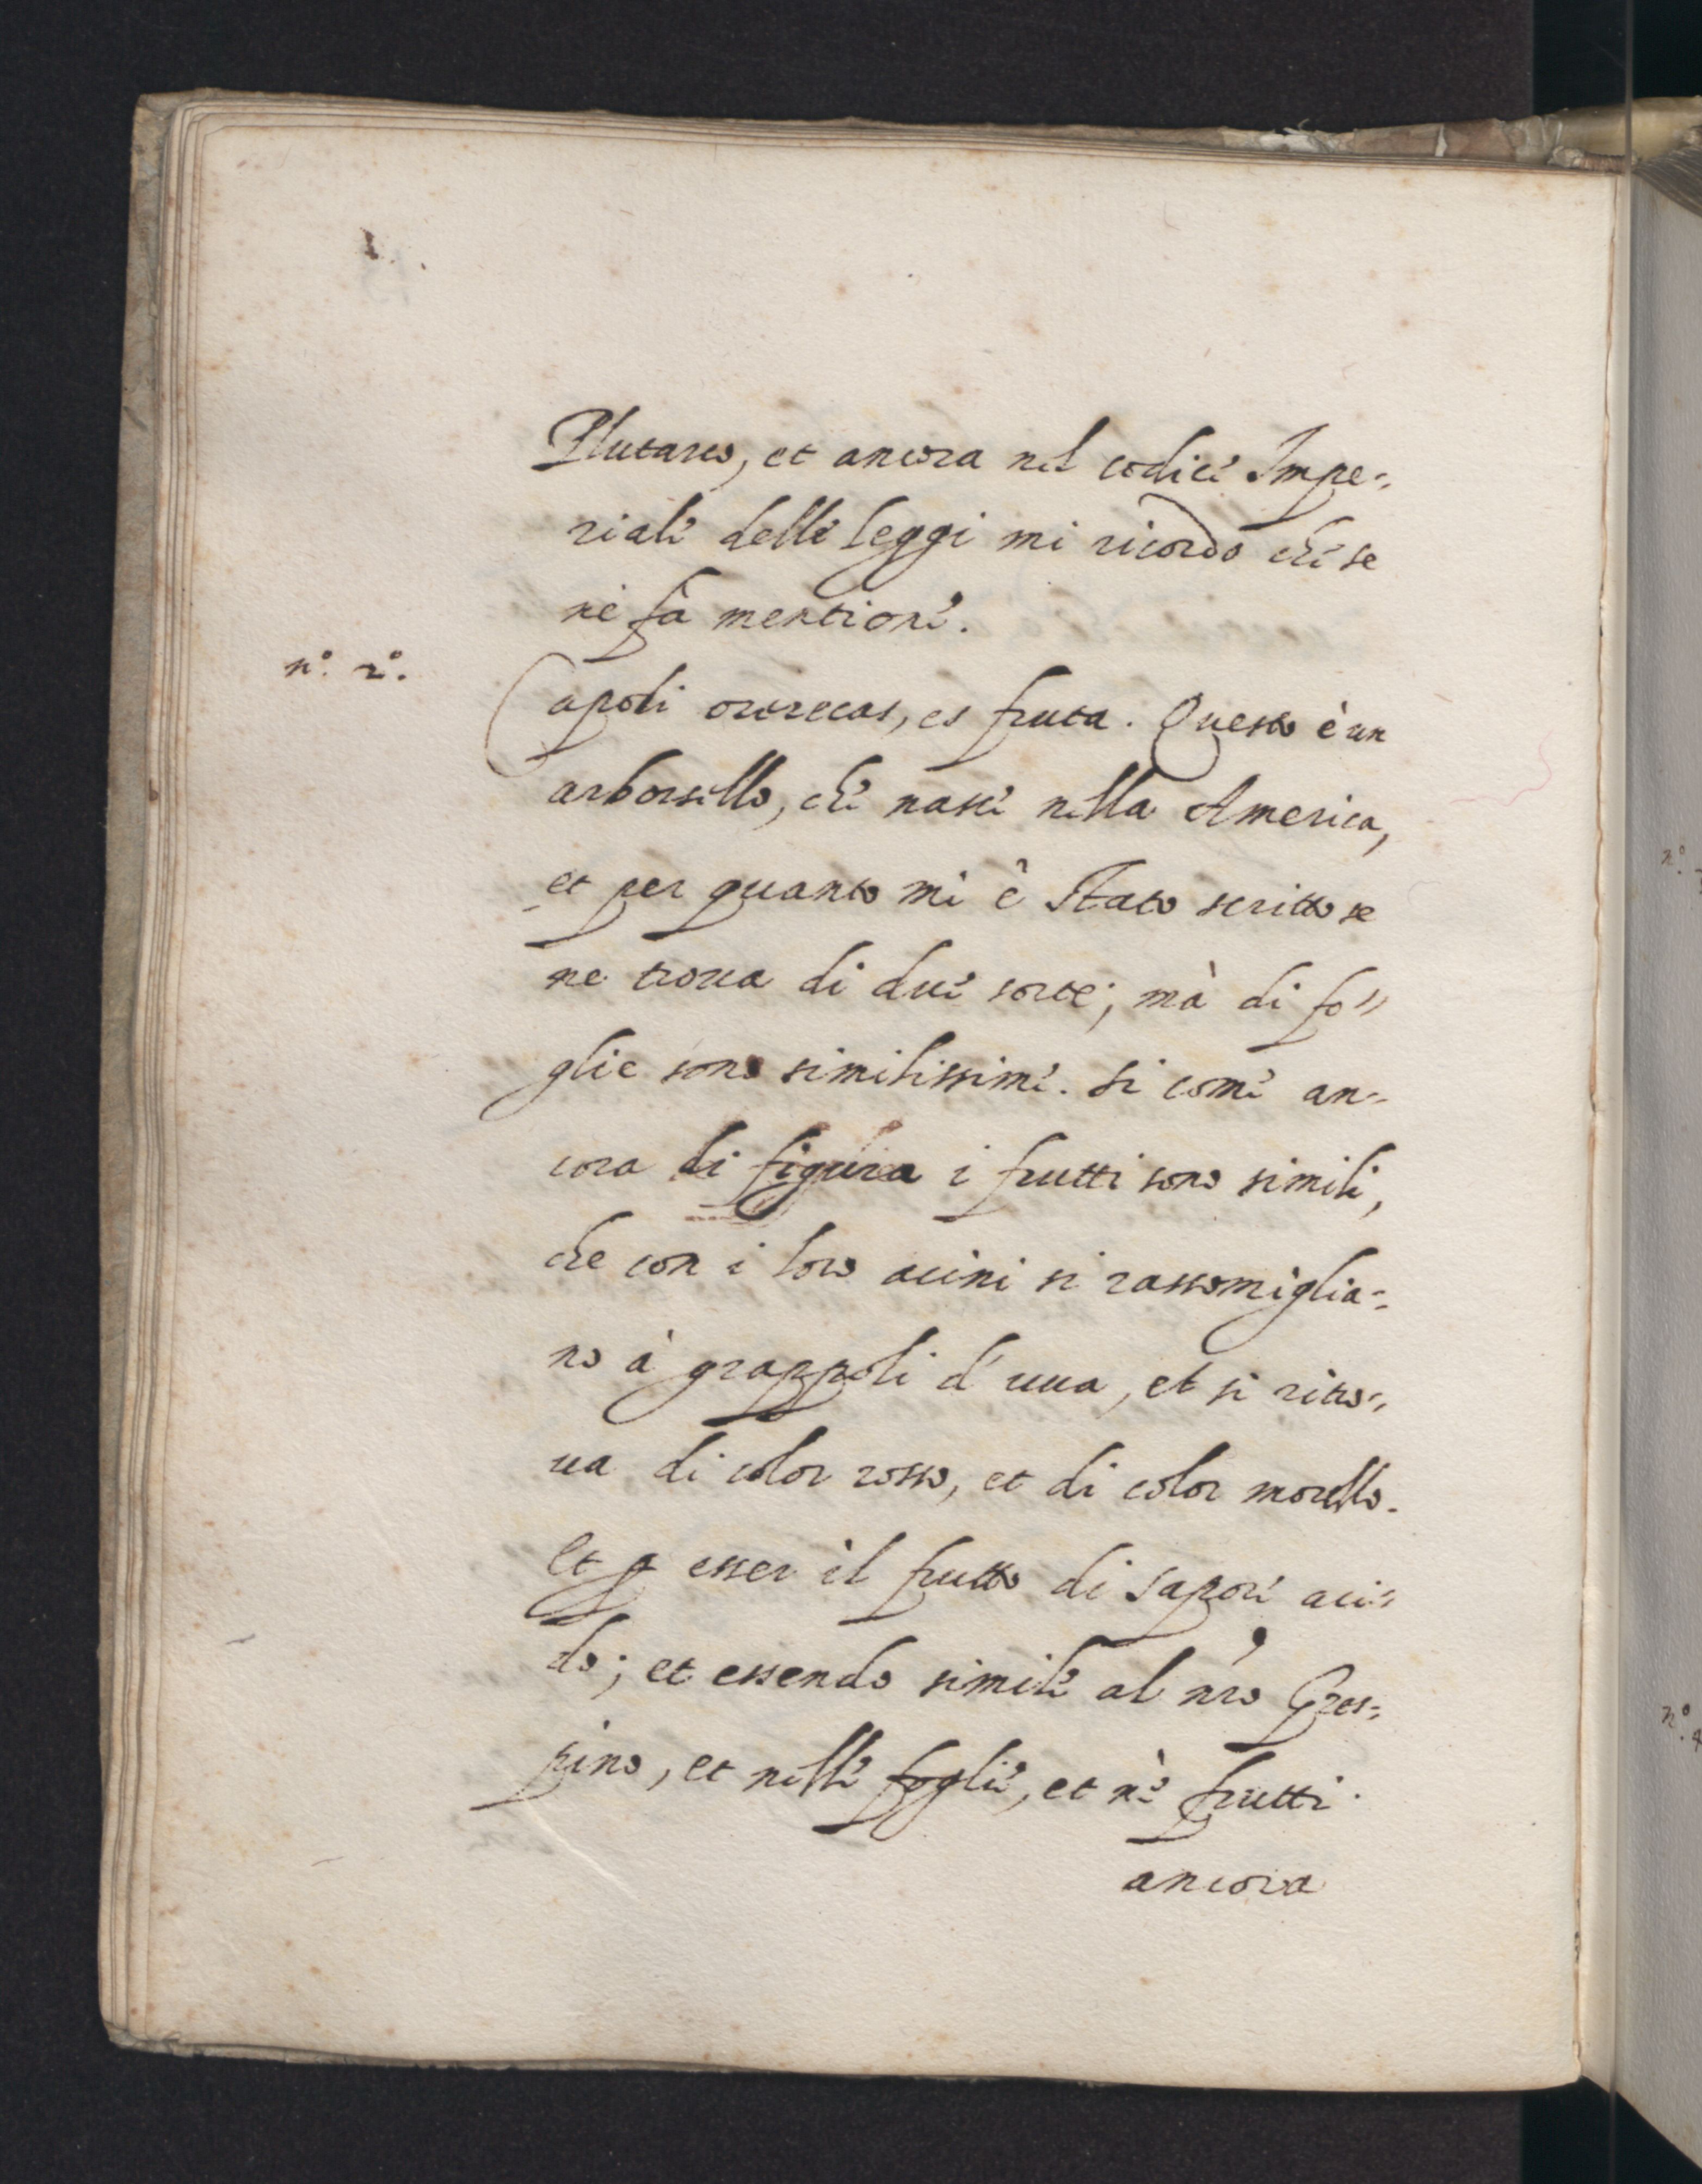 Plutarco, et ancora nel codice Impe=
riale delle leggi mi ricordo che se
ne fà mentione.
n.o 2.o
Capoli ororecas, es fruta. Questo è un
arborsello, che nasce nella America,
et per quanto mi è stato scritto se
ne troua di due sorte; mà di fo=
glie sono similissime. si come an=
cora di figura i frutti sono simili,
che con i loro acini si rassomiglia=
no à grappoli d'uua, et si ritro=
ua di color rosso, et di color morello.
Et ꝑ esser il frutto di sapore aci=
do; et essendo simile al nr̃o Cres=
pino, et nelle foglie, et nè frutti
ancora